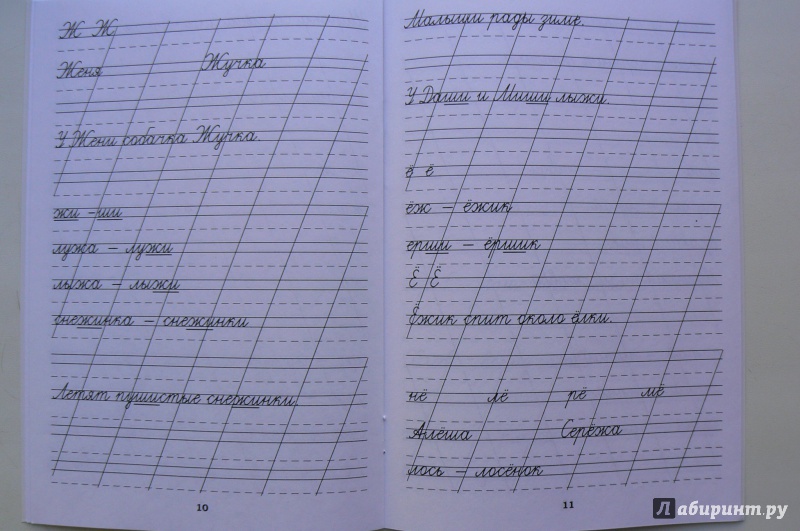 Ж Ж
Женя Жучка
У Жени собачка Жучка.
жи - ши
лужа - лужи
лыжа - лыжи
снежинка - снежинки
Летят пушистые снежинки.
10
Малыши рады зиме.
У Даши и Миши лыжи.
ё ё
ёж - ёжик
ерши - ёршик
Ё Ё
Ёжик спит около ёлки.
нё лё рё мё
Алёша Серёжа
лось - лосёнок
11
Лабиринт.ру